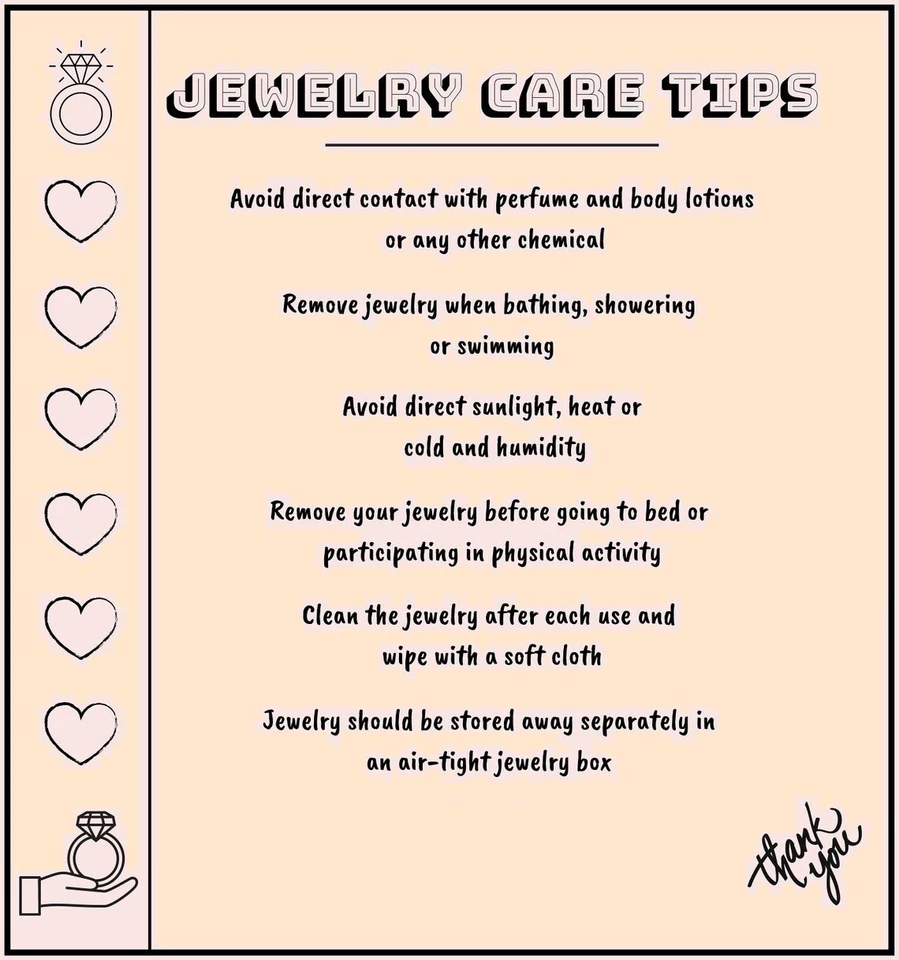 JEWELRY CARE TIPS
Avoid direct contact with perfume and body lotions
or any other chemical
Remove jewelry when bathing, showering
or swimming
Avoid direct sunlight, heat or
cold and humidity
Remove your jewelry before going to bed or
participating in physical activity
Clean the jewelry after each use and
wipe with a soft cloth
Jewelry should be stored away separately in
an air-tight jewelry box
thank
you